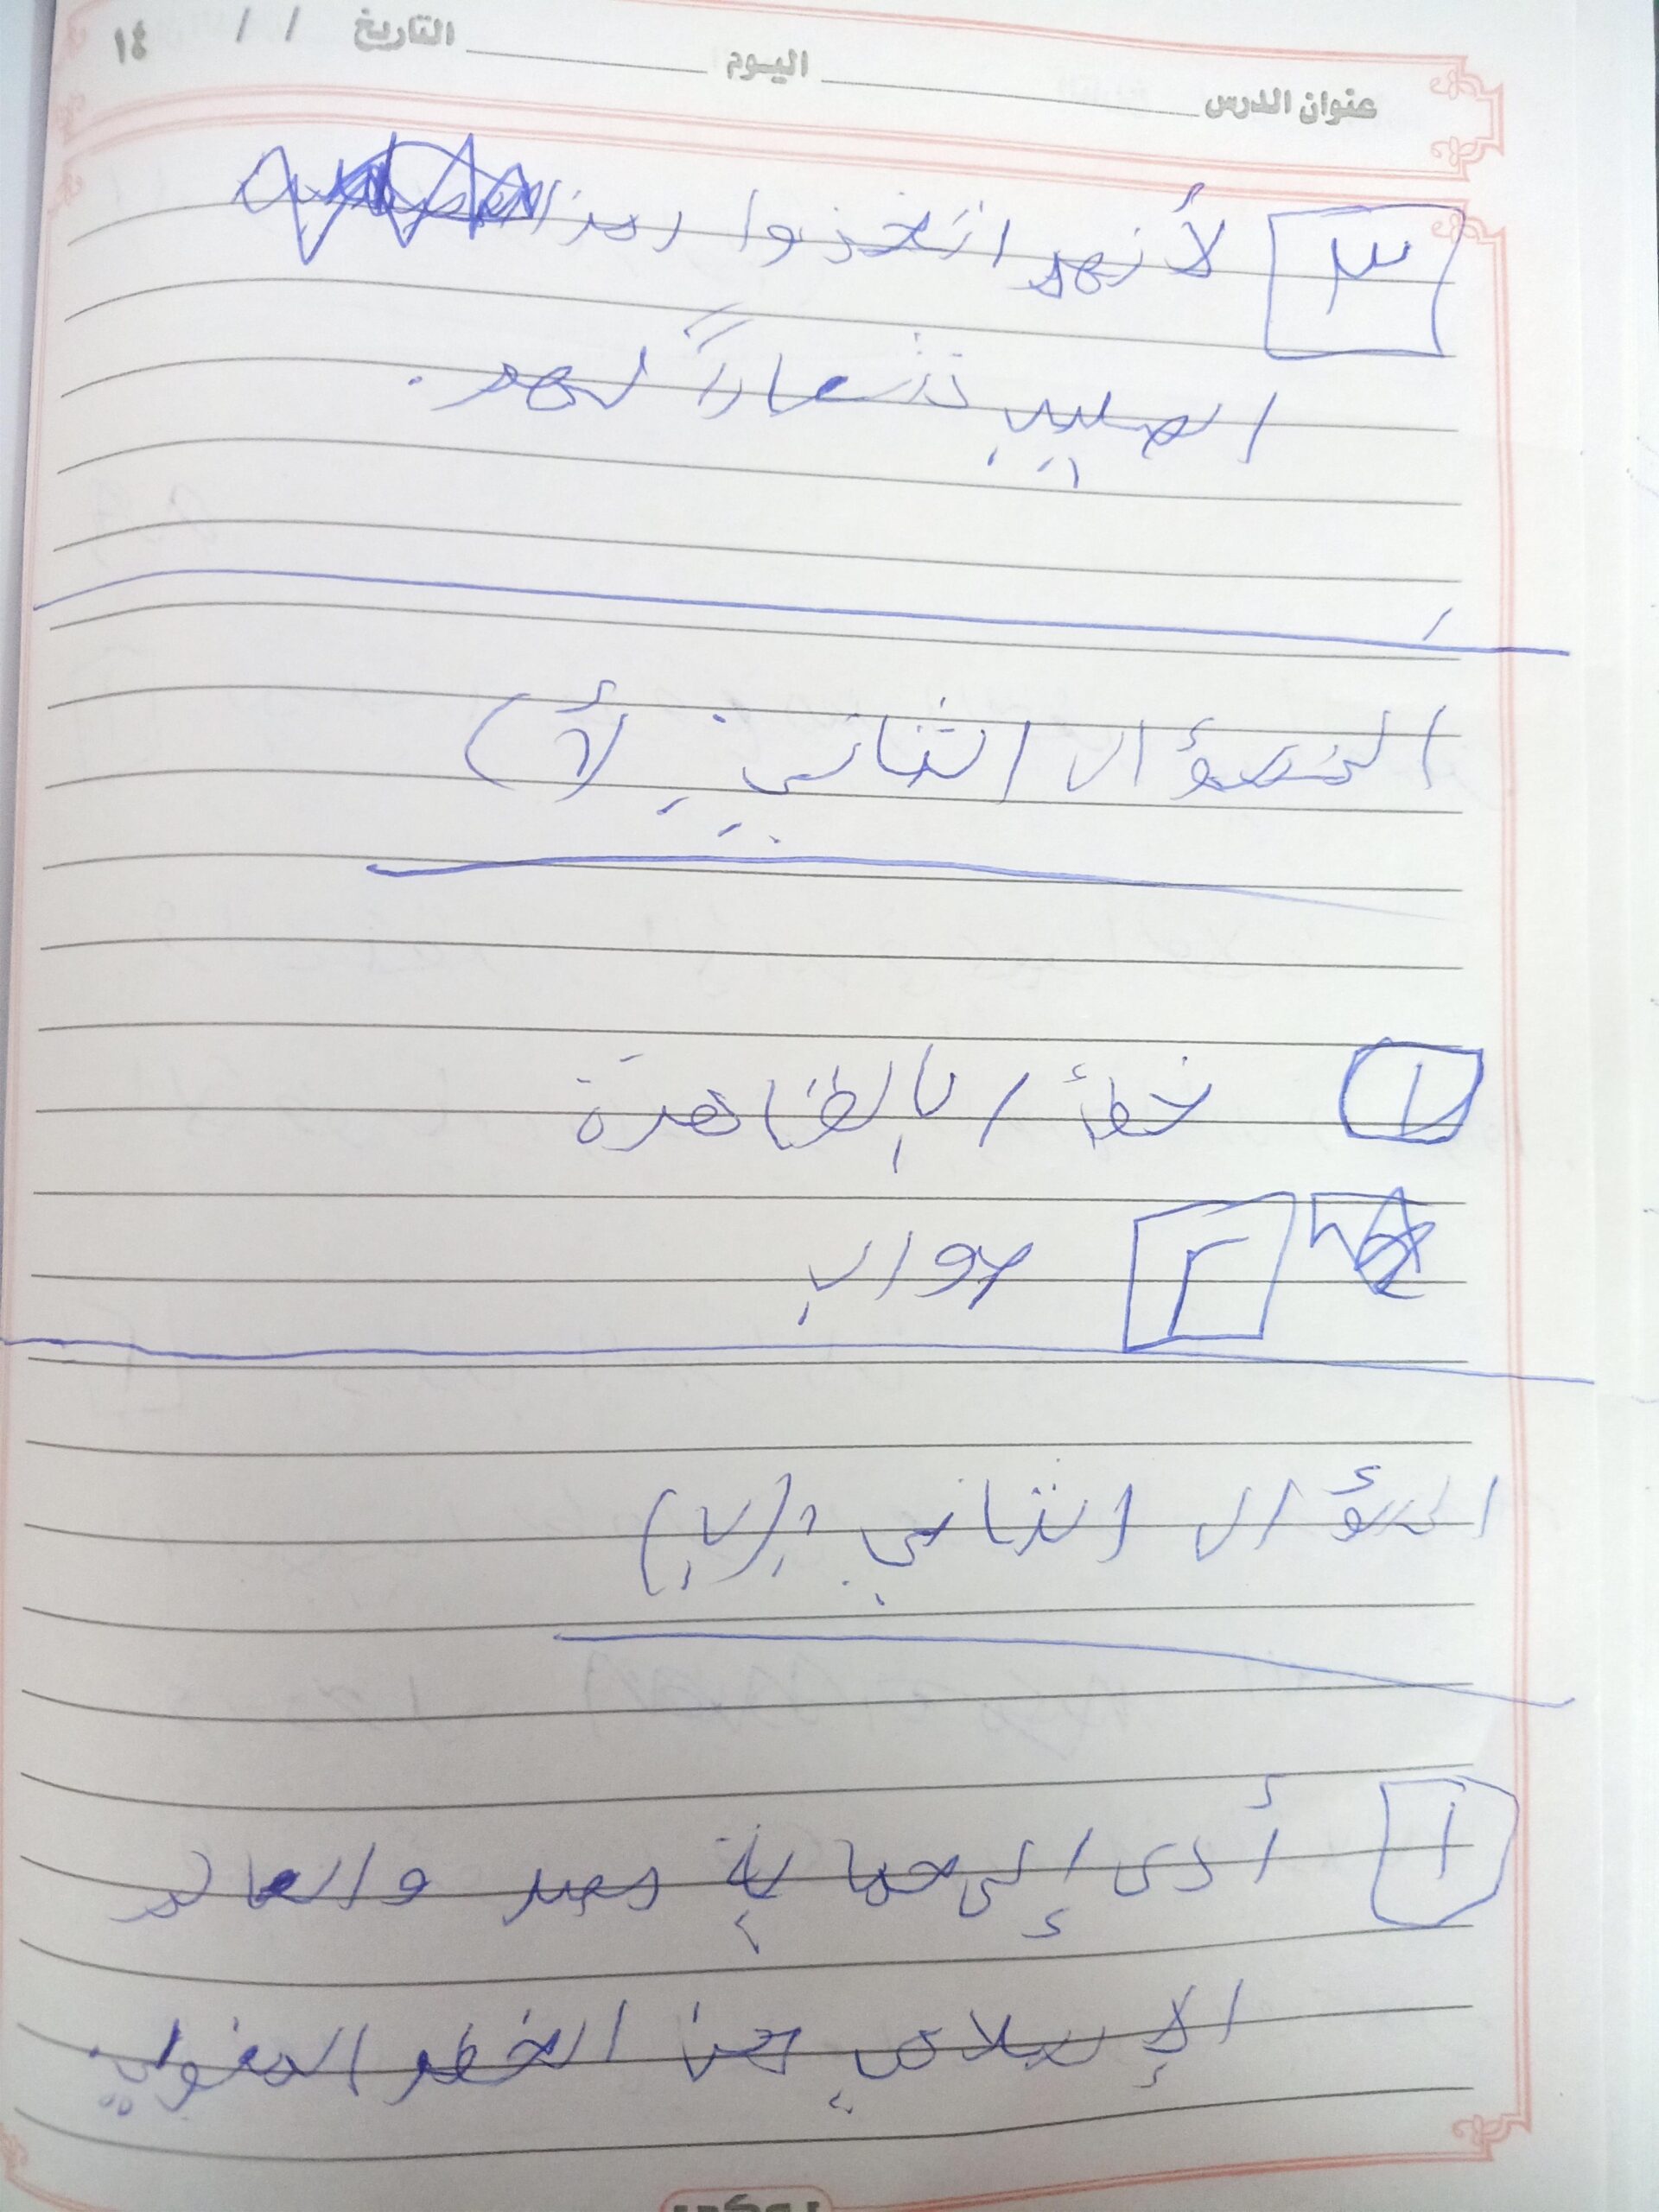 عنوان الدرس اليوم التاريخ / / ١٤
٣ لأنهم اتخذوا رمز
الصليب شعاراً لهم.
السؤال الثاني: (أ)
١ خطأ / بالظاهرة
٢ صواب
السؤال الثاني: (ب)
١ أدى إلى حماية مصر والعالم
الإسلامي من الخطر المغولي